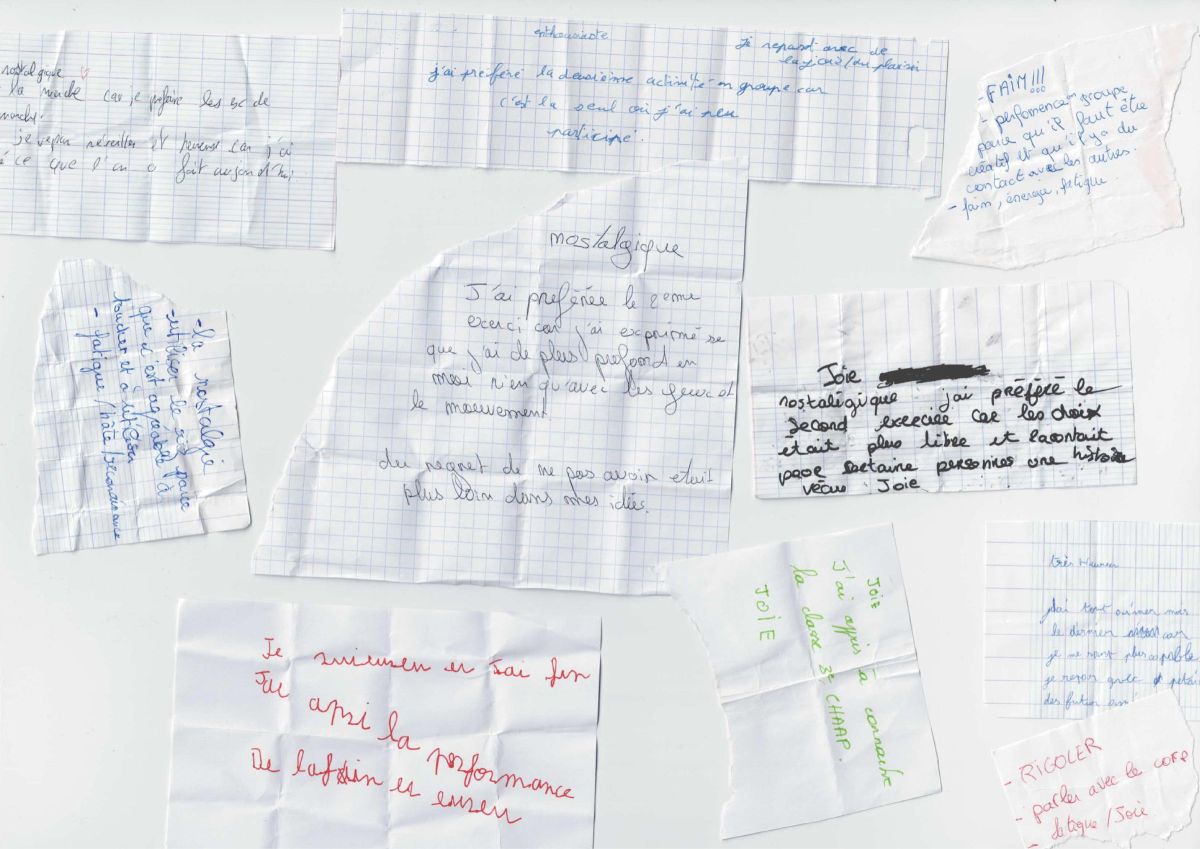 nostalgique
la car je les de
je et car j'ai
ce que l'on a fait aujourd'hui
enthousiaste
je repart avec de
la joie/du plaisir
j'ai préféré la deuxième activité en groupe car
c'est la seul où j'ai peu
participé.
- FAIM!!!
- perfomence en groupe
parce qu'il faut être
créatif et qu'il y a du
contact avec les autres.
- faim, énergie, fatigue.
nostalgique
J'ai préférée le 2eme
exerci car j'ai exprimé se
que j'ai de plus profond en
moi rien qu'avec les yeux et
le mouvement.
du regret de ne pas avoir etait
plus loin dans mes idées.
- la nostalgie
- utiliser le riz parce
que c'est agréable à
toucher et à utiliser
- fatigue/hâte/reconaissance
Joie
nostalégique j'ai préféré le
second exerciee car les choix
était plus libre et racontait
pour certaine personnes une histoire
vécue Joie
JOIE
J'ai appris à connaitre
la classe 3e CHAAP.
JOIE
très Heureux
j'ai tout aimer mais
le dernier car
je me sent plus capable
je repar
des
Je er J'ai fin
J'ai la performance
De la er
- RIGOLER
- parler avec le corp
fatigue/Joie